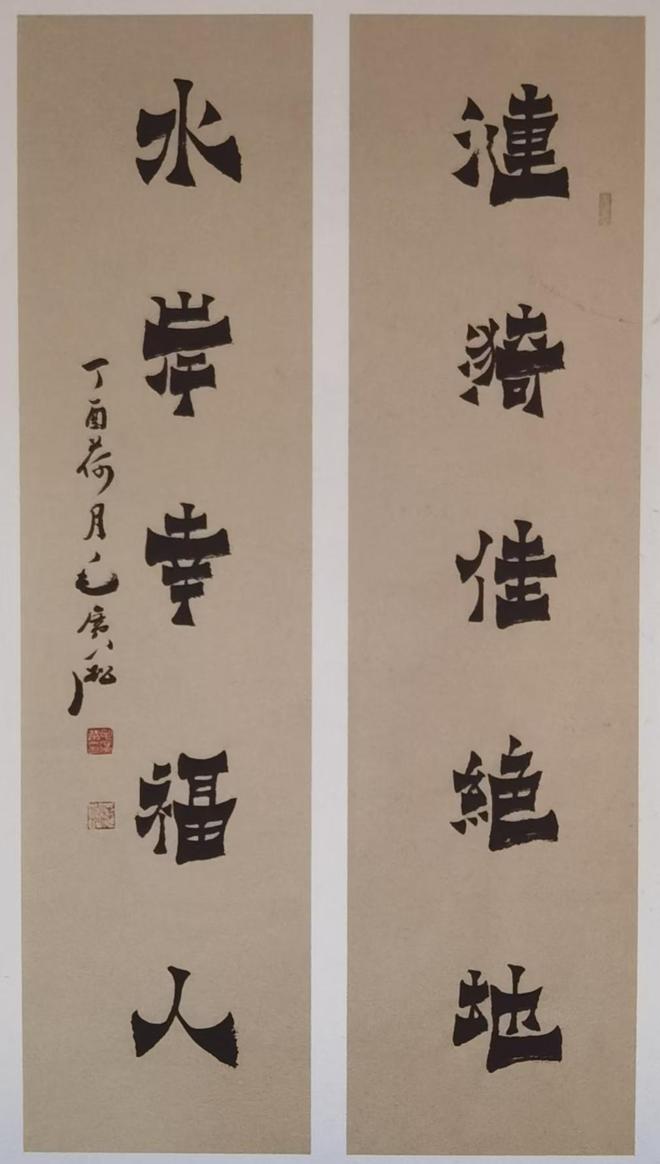 漣猗佳絕地
水岸幸福人
丁酉荷月毛廣淞